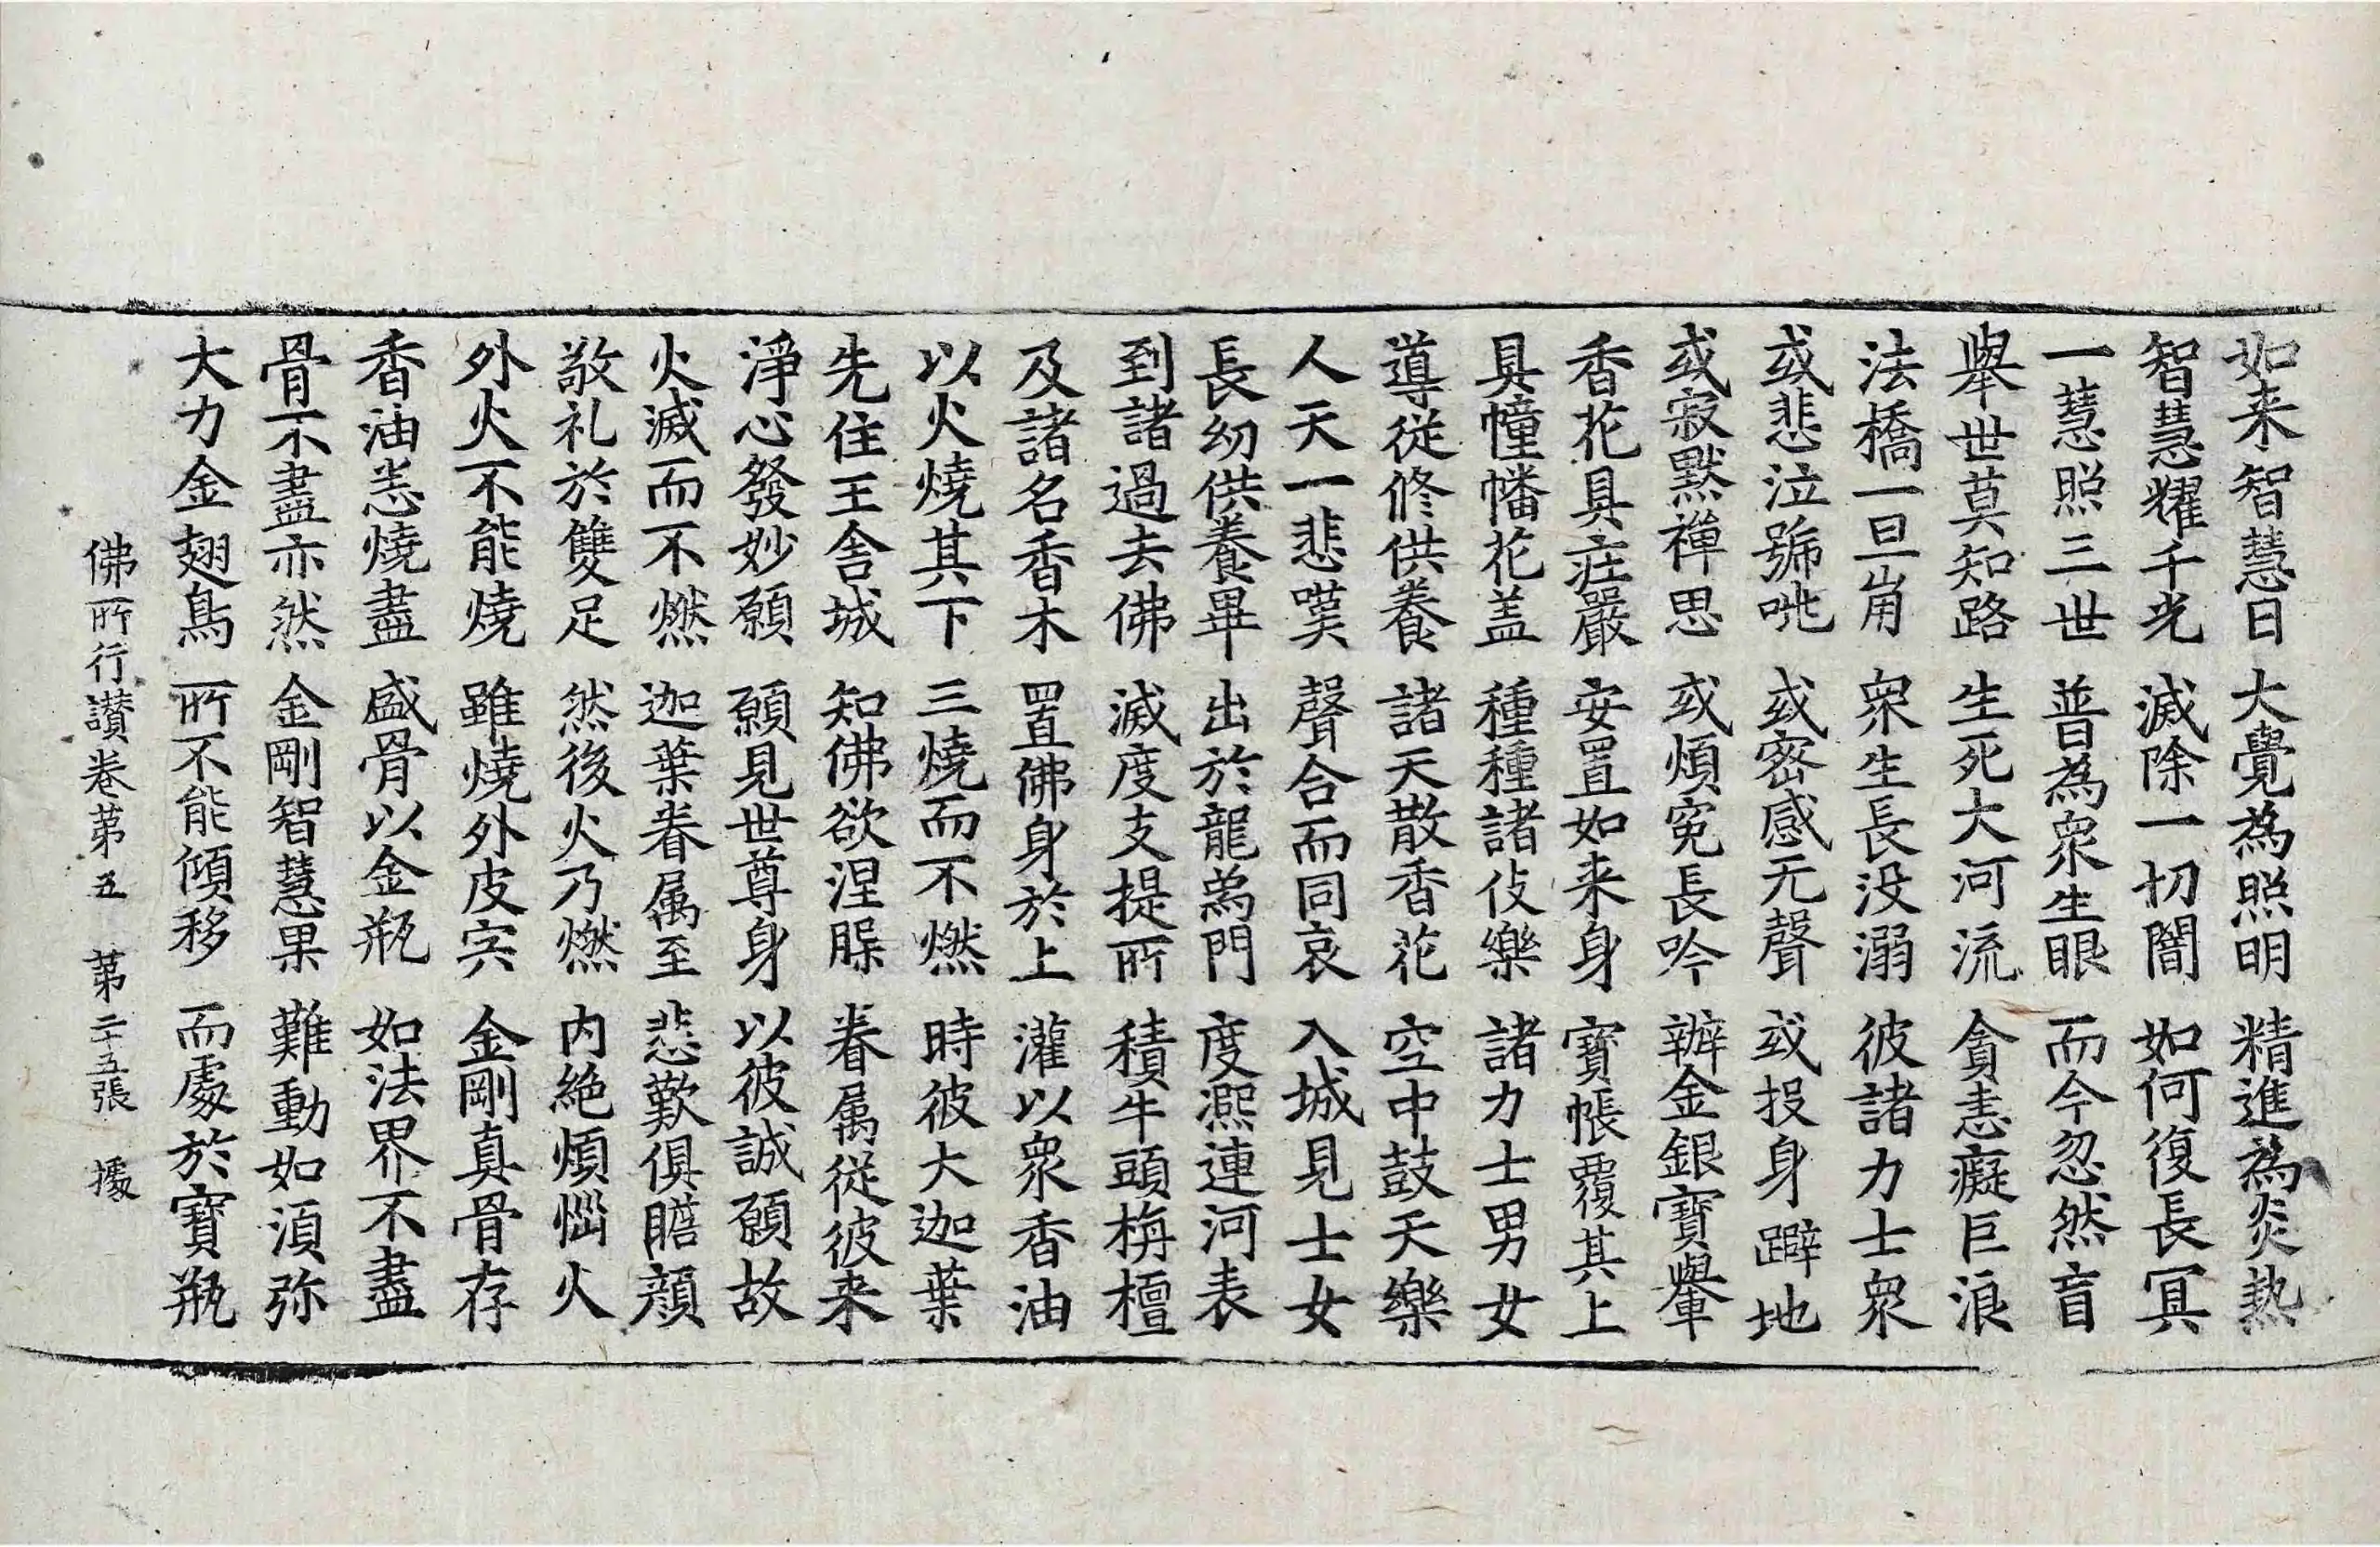 如来智慧日 大覺為照明 精進為炎熱
智慧耀千光 滅除一切闇 如何復長冥
一慧照三世 普為衆生眼 而今忽然盲
擧世莫知路 生死大河流 貪恚癡巨浪
法橋一旦崩 衆生長没溺 彼諸力士衆
或悲泣號咷 或密感无聲 或投身躃地
或寂默禪思 或煩冤長吟 辦金銀寶轝
香花具莊嚴 安置如来身 寶帳覆其上
具幢幡花盖 種種諸伎樂 諸力士男女
導從修供養 諸天散香花 空中鼓天樂
人天一悲嘆 聲合而同哀 入城見士女
長幼供養畢 出於龍爲門 度凞連河表
到諸過去佛 滅度支提所 積牛頭栴檀
及諸名香木 置佛身於上 灌以衆香油
以火燒其下 三燒而不燃 時彼大迦葉
先住王舎城 知佛欲涅槃 眷属從彼来
淨心發妙願 願見世尊身 以彼誠願故
火滅而不燃 迦葉眷属至 悲歎俱瞻顔
敬礼於雙足 然後火乃燃 内絶煩惱火
外火不能燒 雖燒外皮宍 金剛真骨存
香油悉燒盡 盛骨以金瓶 如法界不盡
骨不盡亦然 金剛智慧果 難動如湏弥
大力金翅鳥 所不能傾移 而處於寶瓶
佛所行讃卷苐五 苐二十五張 㯫